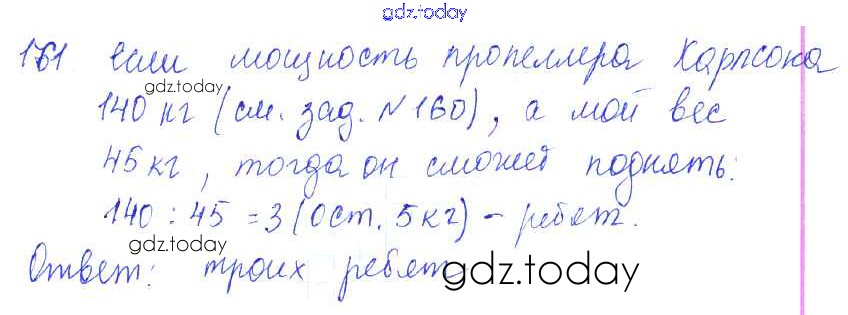 gdz.today
161 если мощность пропеллера Карлсона
gdz.today
140 кг (см. зад. №160), а мой вес
45 кг, тогда он сможет поднять:
140 : 45 = 3 (ост. 5 кг) - ребят.
gdz.today
Ответ: троих ребят
gdz.today